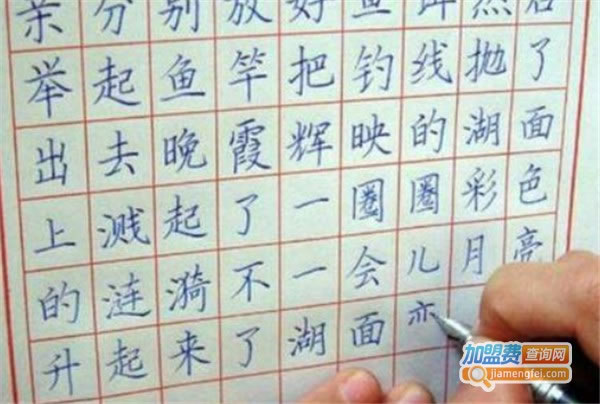 亲分别放好鱼饵然后
举起鱼竿把钓线抛了
出去晚霞辉映的湖面
上溅起了一圈圈彩色
的涟漪不一会儿月亮
升起来了湖面
加盟费查询网
jiamengfei.com